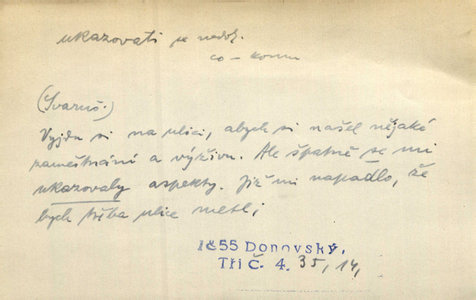 ukazovati se nedok.
co – komu
(Svarné.)
Vyjdu si na ulici, abych si našel nějaké
zaměstnání a výživu. Ale špatně se mi
ukazovaly aspekty. Již mi napadlo, že
bych třeba ulice metl;
1855 Donovský,
Tři č. 4. 35, 14,